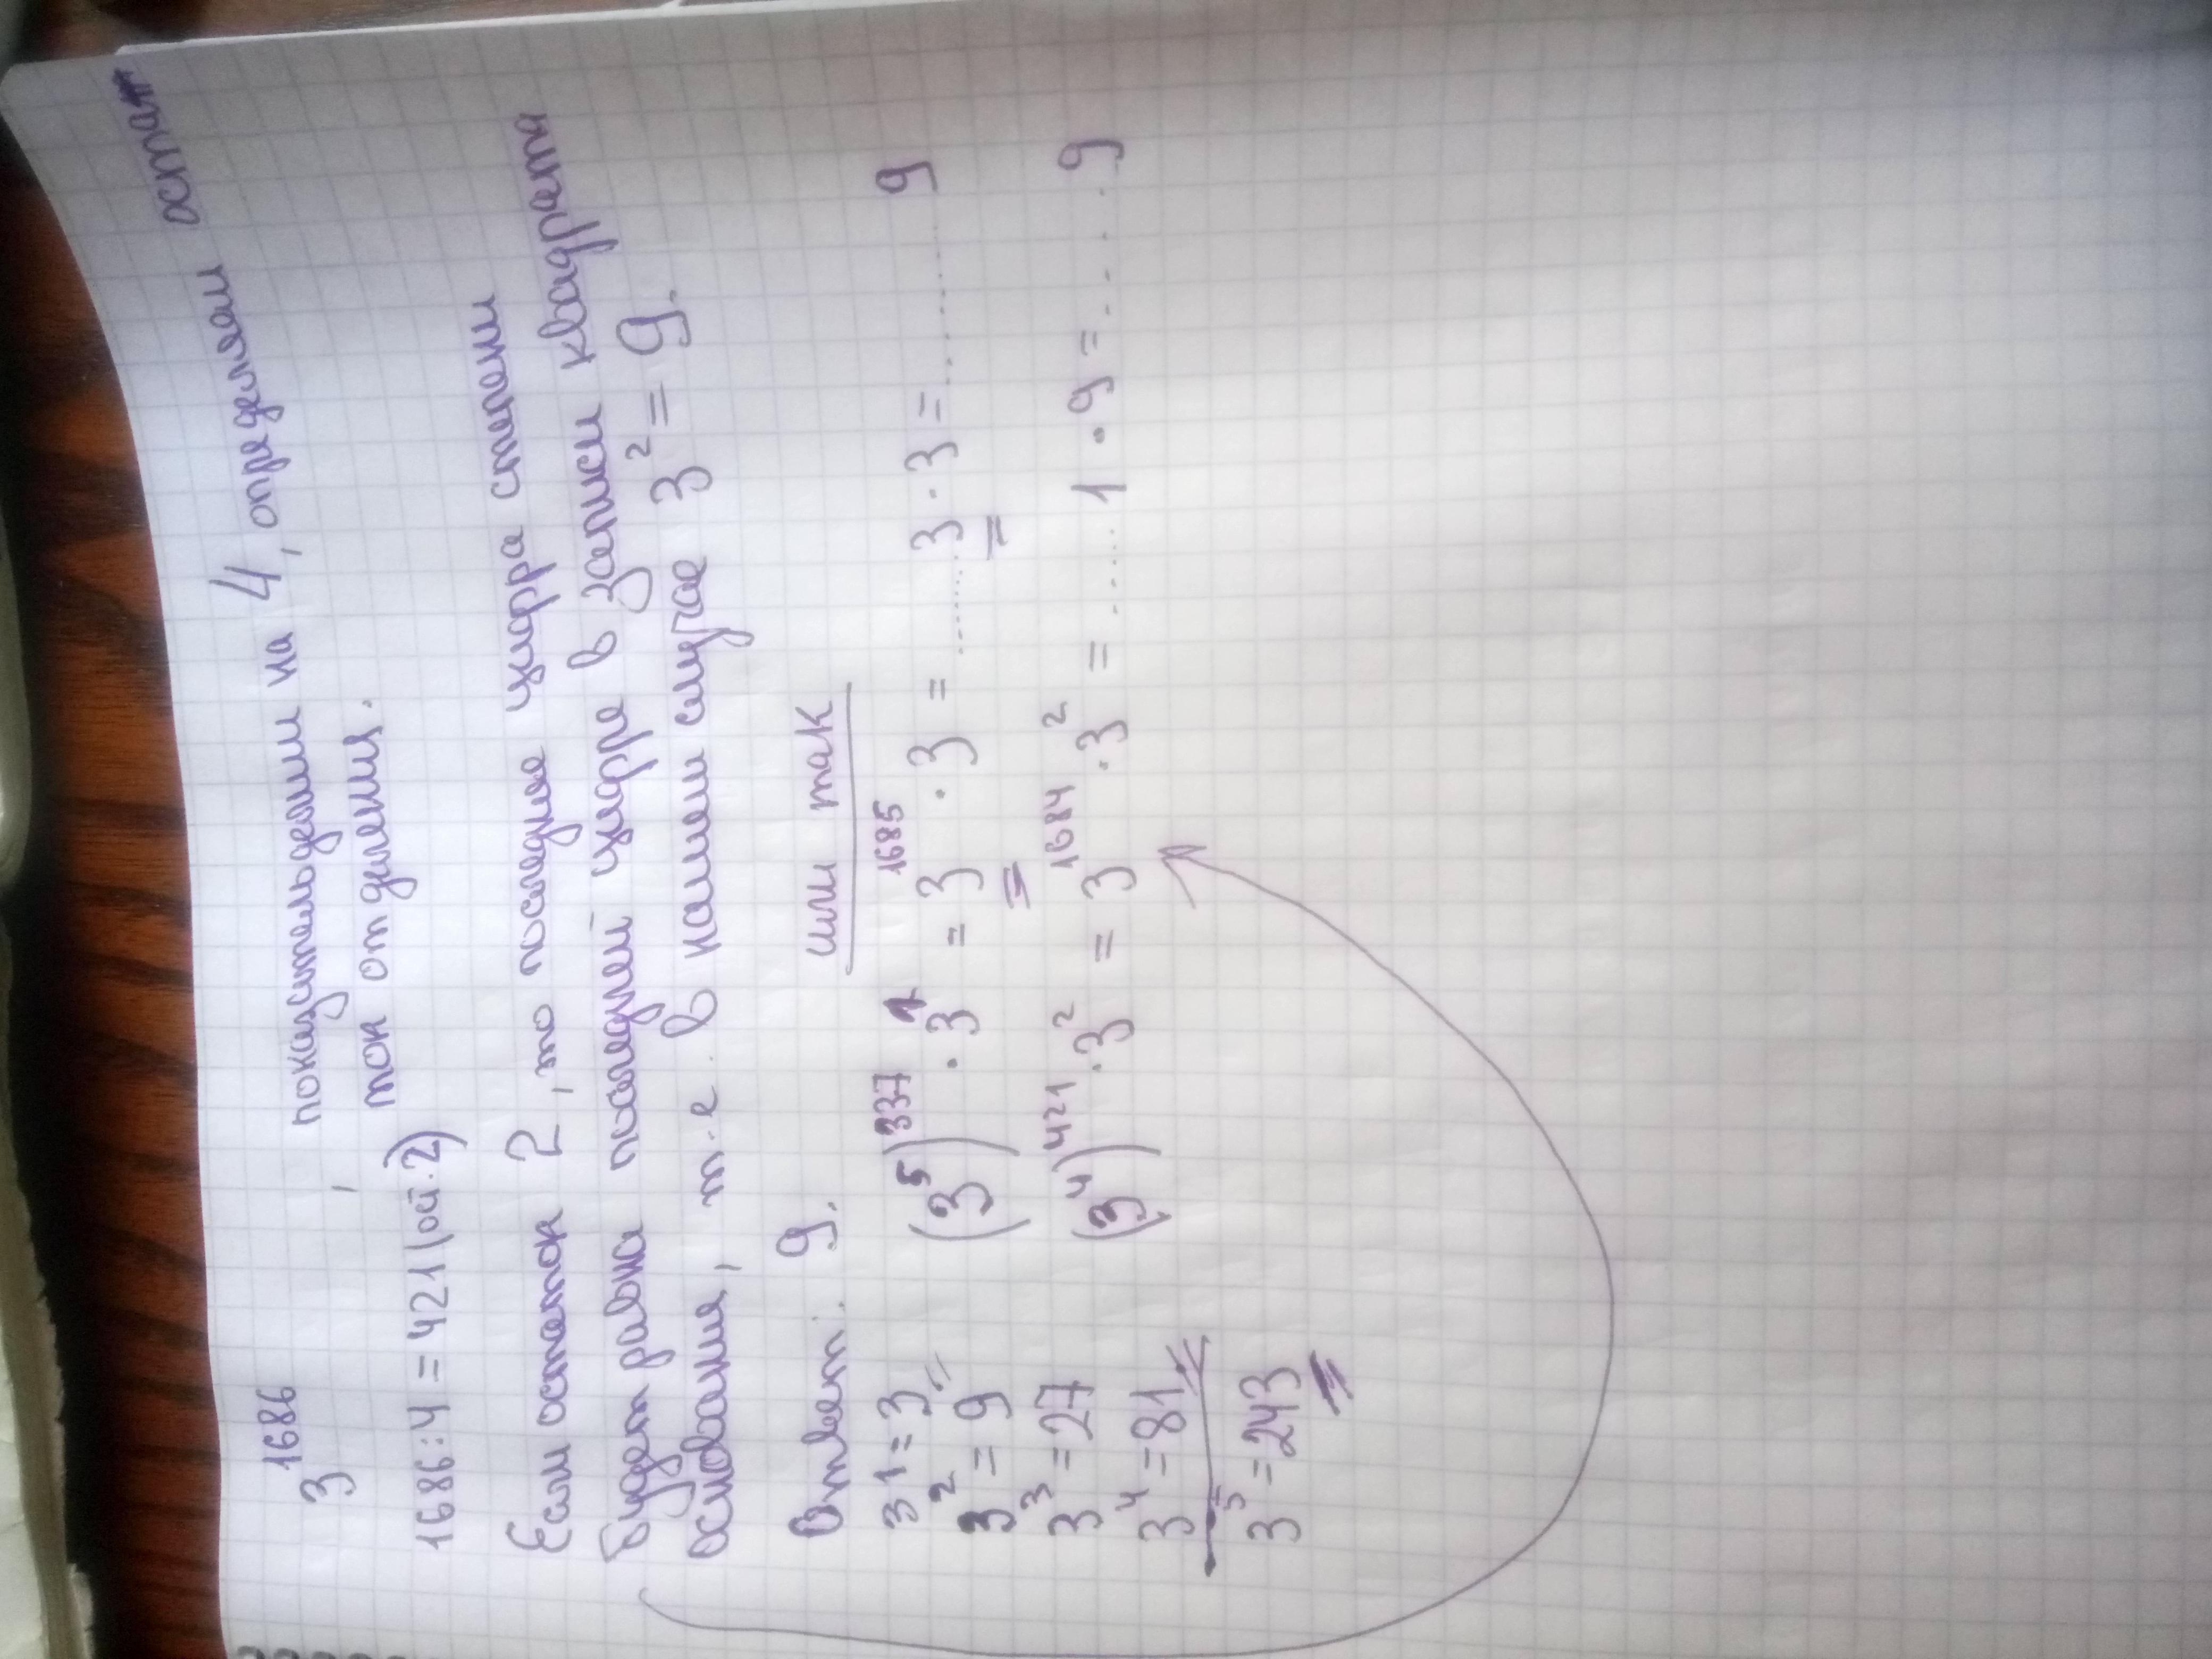 3¹⁶⁸⁶, показатель делим на 4, определяем остат
ток от деления.
1686:4 = 421 (ост. 2)
Если остаток 2, то последняя цифра степени
будет равна последней цифре в записи квадрата
основания, т.е. в нашем случае 3² = 9.
Ответ: 9.
или так
3¹ = 3
3² = 9
3³ = 27
3⁴ = 81
3⁵ = 243
(3⁵)³³⁷ · 3¹ = 3¹⁶⁸⁵ · 3 = ........3 · 3 = ........ 9
(3⁴)⁴²¹ · 3² = 3¹⁶⁸⁴ · 3² = ......1 · 9 = ..... 9